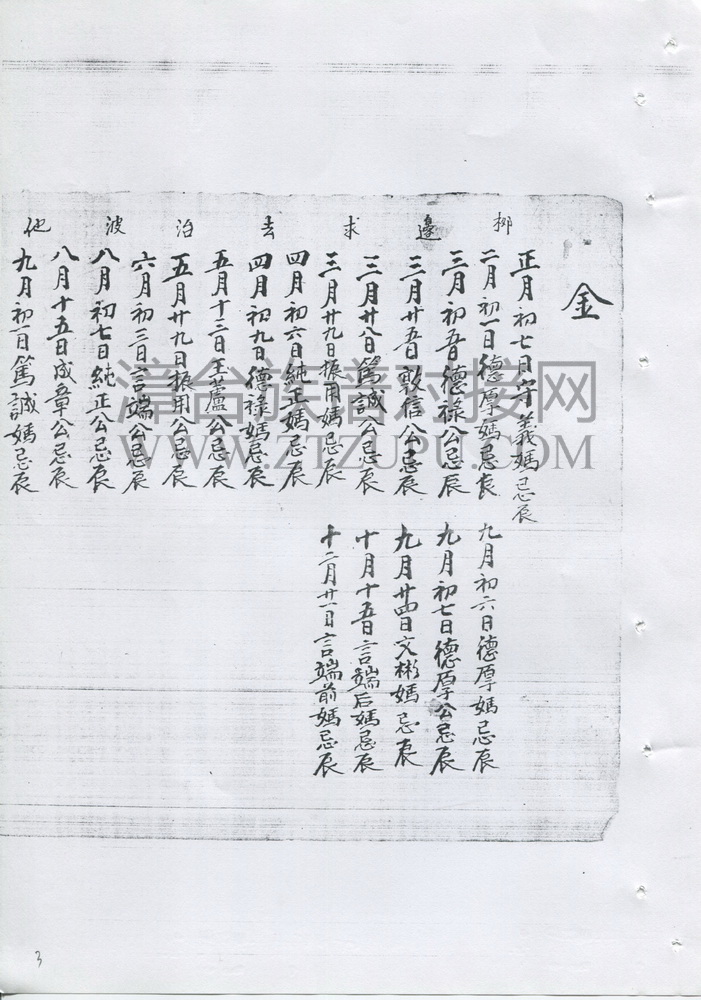 金
柳 邊 求 去 治 波 他
正月初七日守義媽忌辰
二月初一日德厚媽忌辰
三月初五日德祿公忌辰
三月廿五日敦信公忌辰
三月廿八日篤誠公忌辰
三月廿九日振用媽忌辰
四月初六日純正媽忌辰
四月初九日德祿媽忌辰
五月十三日玉蘆公忌辰
五月廿九日振用公忌辰
六月初三日言端公忌辰
八月初七日純正公忌辰
八月十五日成章公忌辰
九月初一日篤誠媽忌辰
九月初六日德厚媽忌辰
九月初七日德厚公忌辰
九月廿四日文彬媽忌辰
十月十五日言端后媽忌辰
十二月廿一日言端前媽忌辰
漳台族谱对接网
WWW.ZTZUPU.COM
3